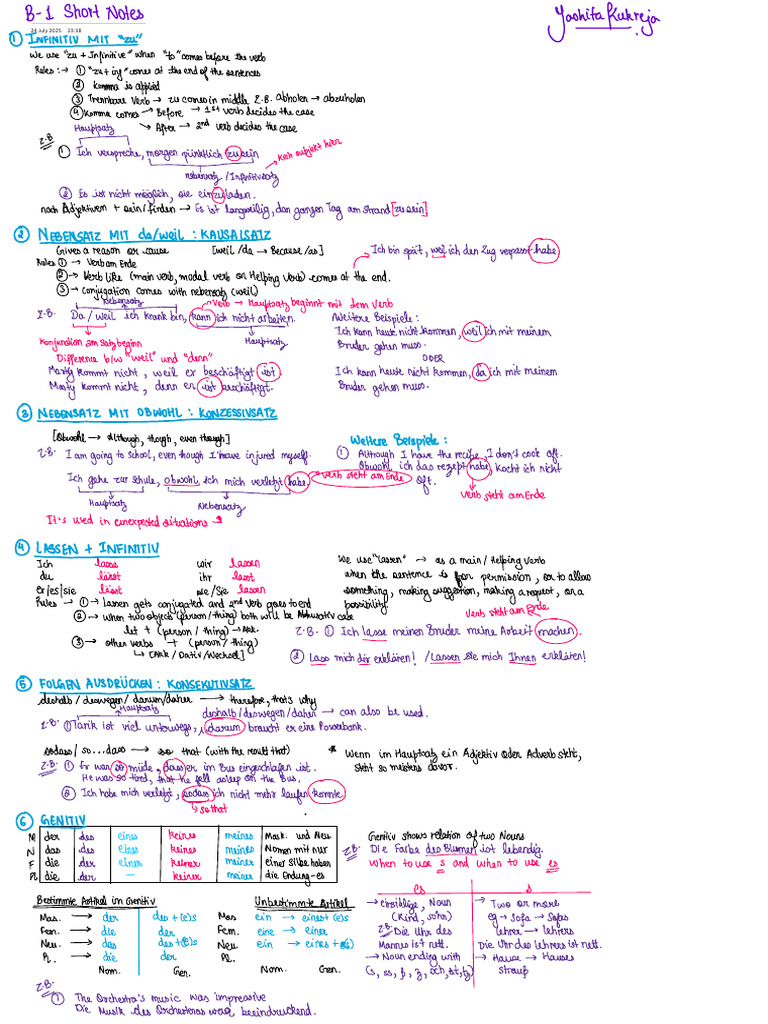 B-1 Short Notes
Yashita Kukreja
24 July 2025 23:18
① INFINITIV MIT "zu"
We use "zu + Infinitive" when "to" comes before the verb
Rules :→ ① "zu + inf" comes at the end of the sentences
② Komma is applied
③ Trennbare Verb → zu comes in middle Z.B. Abholen → abzuholen
④ Komma comes → Before → 1st verb decides the case
→ After → 2nd verb decides the case
Hauptsatz
Z.B.
① Ich verspreche, morgen pünktlich zu sein
→ Kein subjekt hier
Nebensatz / Infinitivsatz
② Es ist nicht möglich, sie einzuladen.
nach Adjektiven + sein/finden → Es ist langweilig, den ganzen Tag am Strand [zu sein]
② NEBENSATZ MIT da/weil : KAUSALSATZ
Gives a reason or cause [weil/da → Because/as]
Ich bin spät, weil ich den Zug verpasst habe
Rules ① → Verb am Ende
② → Verb like (main verb, modal verb or Helping verb) comes at the end.
③ → conjugation comes with nebensatz (weil)
Nebensatz
Verb → Hauptsatz beginnt mit dem Verb
Z.B. Da / weil ich krank bin, kann ich nicht arbeiten.
Hauptsatz
Konjunktion am Satzbeginn
Weitere Beispiele :
Ich kann heute nicht kommen, weil ich mit meinem
Bruder gehen muss.
ODER
Ich kann heute nicht kommen, da ich mit meinem
Bruder gehen muss.
Difference b/w "weil" und "denn"
Marty kommt nicht, weil er beschäftigt ist.
Marty kommt nicht, denn er ist beschäftigt.
③ NEBENSATZ MIT OBWOHL : KONZESSIVSATZ
[Obwohl → Although, though, even though]
Z.B. I am going to school, even though I have injured myself.
Ich gehe zur Schule, obwohl ich mich verletzt habe.
verb steht am Ende
Hauptsatz
Nebensatz
It's used in unexpected situations
Weitere Beispiele :
① Although I have the recipe, I don't cook oft.
Obwohl ich das rezept habe, kocht ich nicht
oft.
verb steht am Ende
④ LASSEN + INFINITIV
Ich lasse wir lassen
du lässt ihr lasst
er/es/sie lässt sie/Sie lassen
Rules → ① → lassen gets conjugated and 2nd verb goes to end
② → when two objects (person/thing) both will be Akkusativ case
let + (person / thing) → Akk.
③ → other verbs + (person/thing)
↳ [Akk / Dativ/Wechsel]
We use "lassen" → as a main/Helping verb
when the sentence is for permission, or to allow
something, making suggestion, making a request, or a
possibility.
verb steht am Ende
Z.B. ① Ich lasse meinen Bruder meine Arbeit machen.
② Lass mich dir erklären! / Lassen Sie mich Ihnen erklären!
⑤ FOLGEN AUSDRÜCKEN : KONSEKUTIVSATZ
deshalb / deswegen / darum/daher → therefore, that's why
Hauptsatz
deshalb/deswegen/daher → can also be used.
Z.B. ① Tarik ist viel unterwegs, darum braucht er eine Powerbank.
sodass / so...dass → so that (with the result that)
Z.B. ① Er war so müde, dass er im Bus eingeschlafen ist.
He was so tired, that he fell asleep on the Bus.
② Ich habe mich verletzt, sodass ich nicht mehr laufen konnte.
→ so that
* Wenn im Hauptsatz ein Adjektiv oder Adverb steht,
steht so meistens davor.
⑥ GENITIV
M der des eines keines meines Mask. und Neu
N das des eines keines meines Nomen mit nur
F die der einer keiner meiner einer Silbe haben
Pl. die der — keiner meiner die Endung -es
Genitiv shows relation of two Nouns
Z.B. Die Farbe des Blumen ist lebendig.
When to use s and when to use es
es s
→ einsilbige, Noun
(Kind, sohn)
Z.B. Die Uhr des
Mannes ist nett.
→ Noun ending with
(s, ss, ß, z, sch, st, tz)
→ Two or more
eg → Sofa → Sofas
lehrer → lehrers
Die Uhr des lehrers ist nett.
→ Hause → Hauses
strauß
Bestimmte Artikel im Genitiv
Mas. → der des + (e)s
Fem. → die der
Neu. → das des + (e)s
Pl. → die der
Nom. Gen.
Unbestimmte Artikel
Mas ein → eines + (e)s
Fem. eine → einer
Neu ein → eines + (e)s
Pl.
Nom. Gen.
Z.B.
① The Orchestra's music was impressive
Die Musik des Orchesters war beeindruckend.